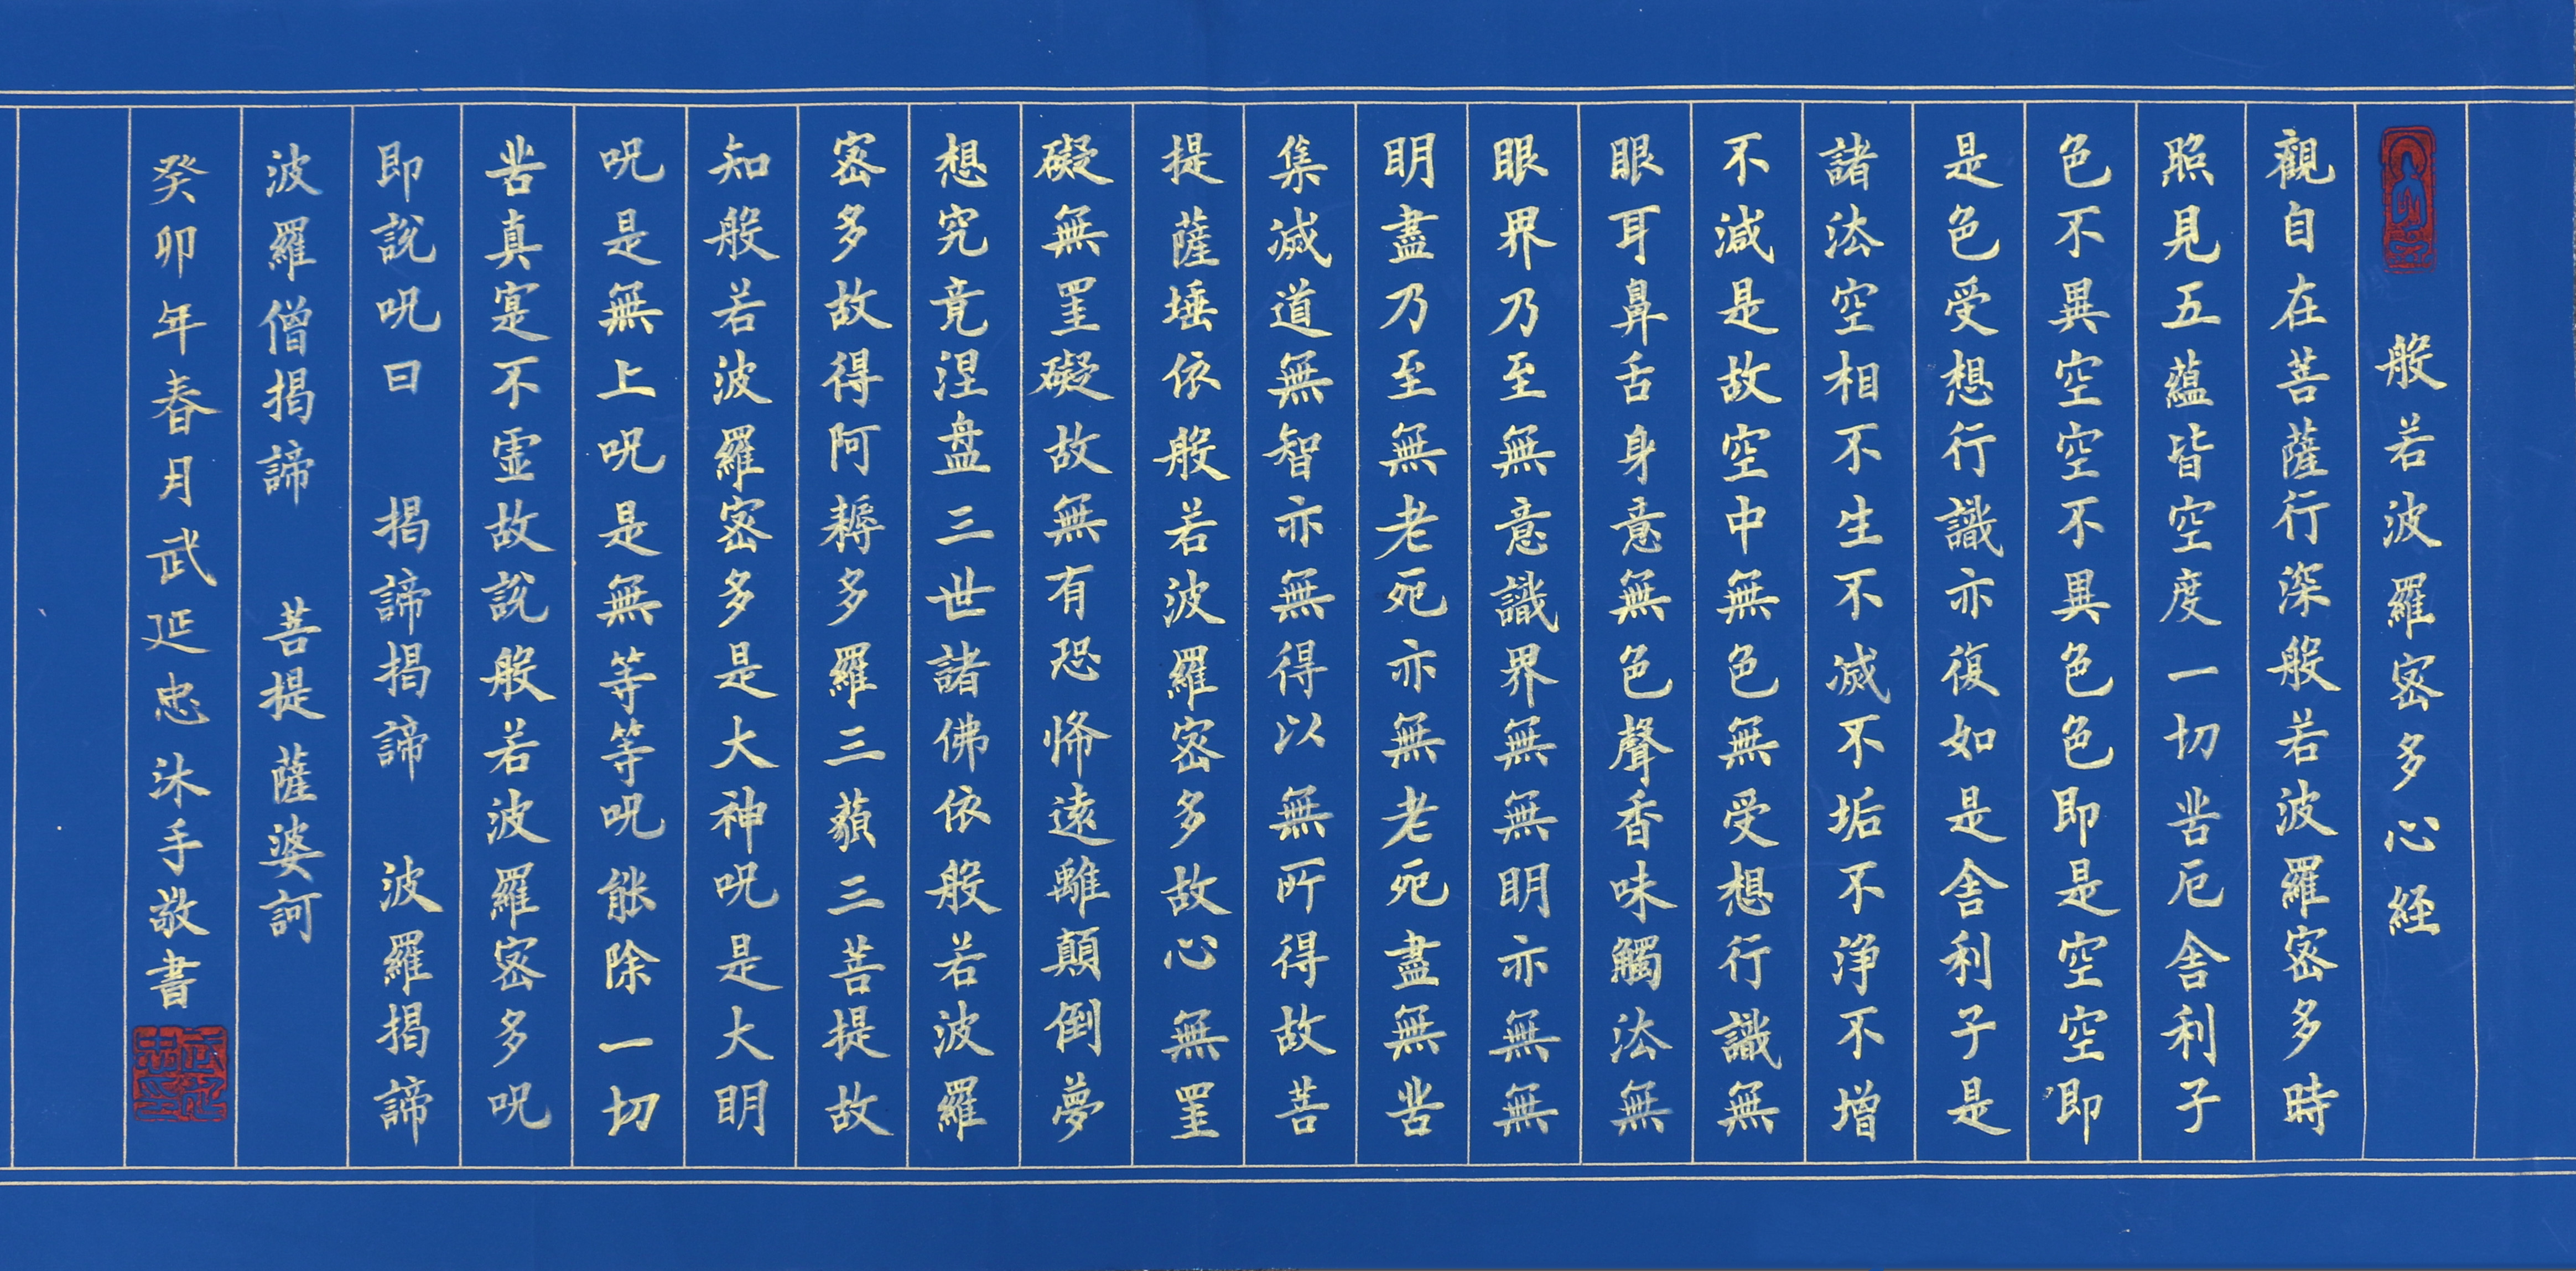 般若波羅密多心経
觀自在菩薩行深般若波羅密多時
照見五蘊皆空度一切苦厄舍利子
色不異空空不異色色即是空空即
是色受想行識亦復如是舍利子是
諸法空相不生不滅不垢不淨不增
不減是故空中無色無受想行識無
眼耳鼻舌身意無色聲香味觸法無
眼界乃至無意識界無無明亦無無
明盡乃至無老死亦無老死盡無苦
集滅道無智亦無得以無所得故菩
提薩埵依般若波羅密多故心無罣
礙無罣礙故無有恐怖遠離顛倒夢
想究竟涅盘三世諸佛依般若波羅
密多故得阿耨多羅三藐三菩提故
知般若波羅密多是大神呪是大明
呪是無上呪是無等等呪能除一切
苦真寔不虛故説般若波羅密多呪
即説呪曰 揭諦揭諦 波羅揭諦
波羅僧揭諦 菩提薩婆訶
癸卯年春月武延忠沐手敬書